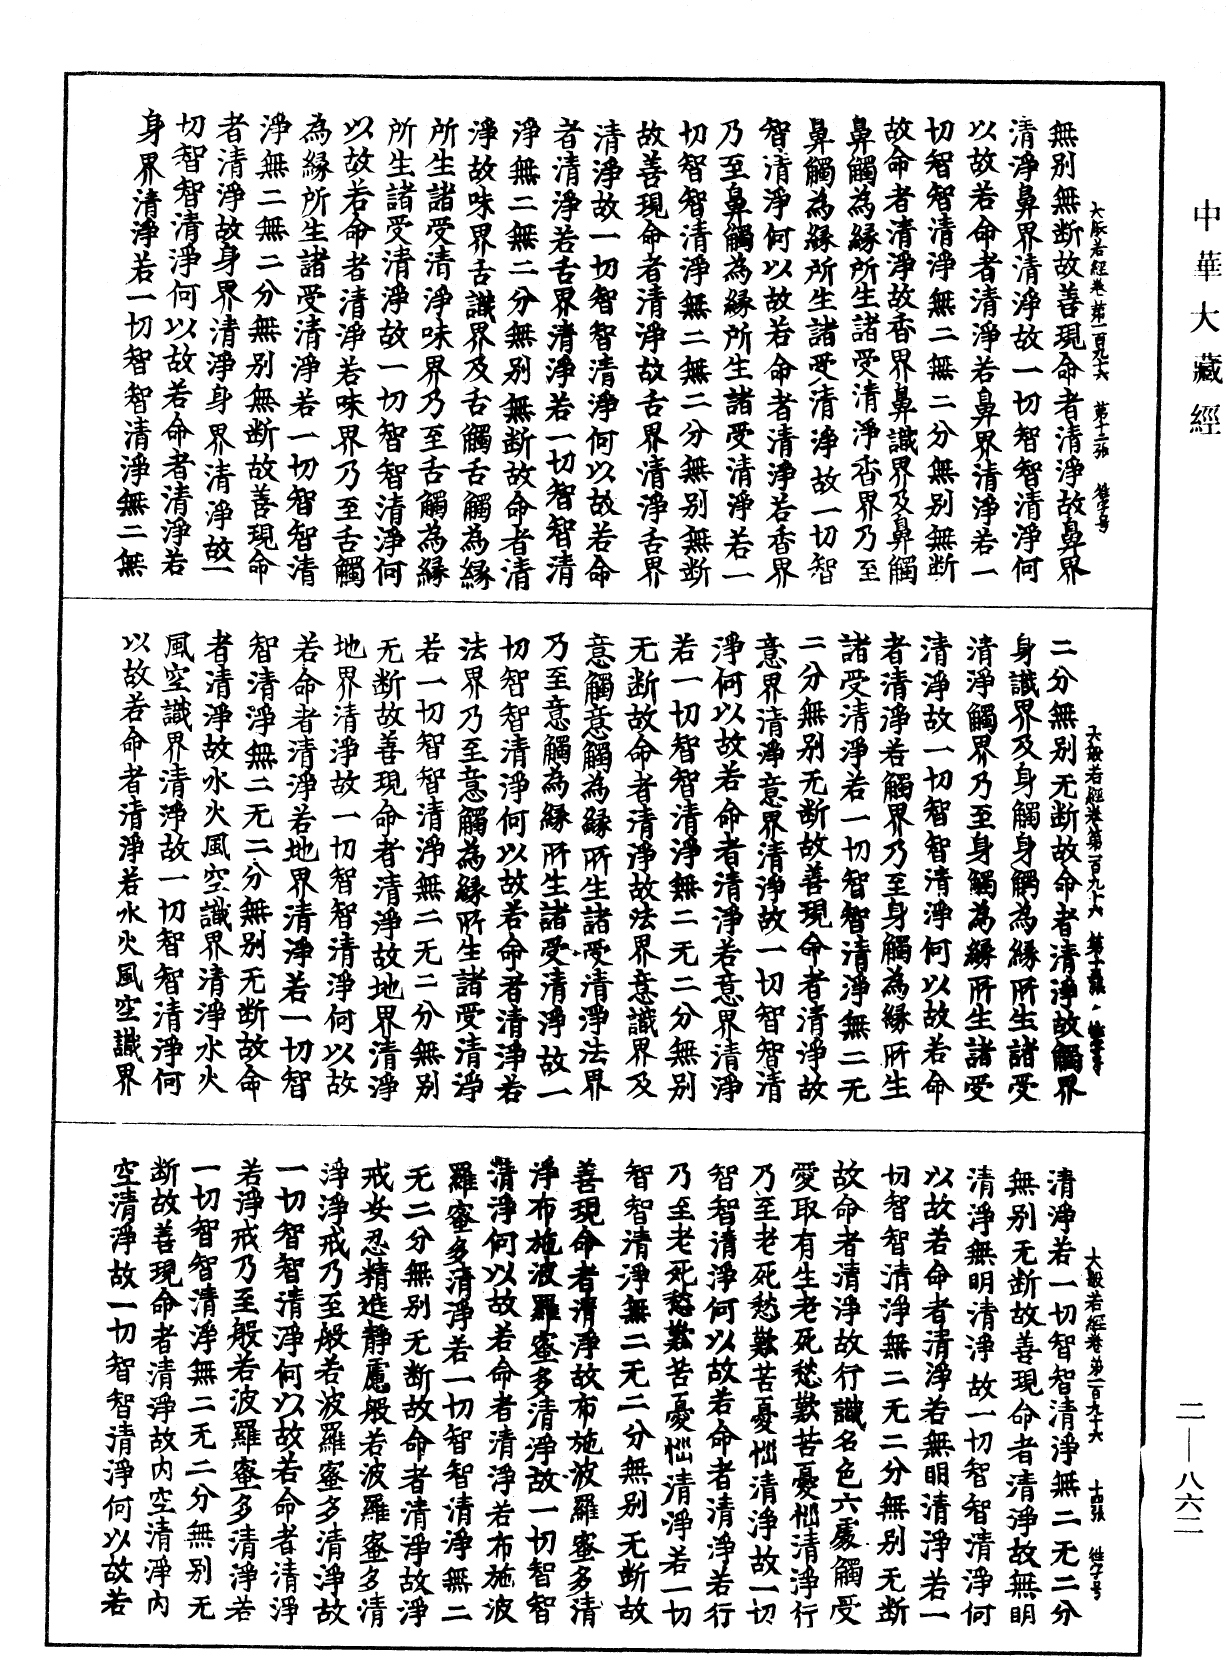 中華大藏經
大般若經卷第一百九十六 第十二張
無别無断故善現命者清淨故鼻界
清淨鼻界清淨故一切智智清淨何
以故若命者清淨若鼻界清淨若一
切智智清淨無二無二分無别無断
故命者清淨故香界鼻識界及鼻觸
鼻觸為緣所生諸受清淨香界乃至
鼻觸為緣所生諸受清淨故一切智
智清淨何以故若命者清淨若香界
乃至鼻觸為緣所生諸受清淨若一
切智智清淨無二無二分無别無断
故善現命者清淨故舌界清淨舌界
清淨故一切智智清淨何以故若命
者清淨若舌界清淨若一切智智清
淨無二無二分無别無断故命者清
淨故味界舌識界及舌觸舌觸為緣
所生諸受清淨味界乃至舌觸為緣
所生諸受清淨故一切智智清淨何
以故若命者清淨若味界乃至舌觸
為緣所生諸受清淨若一切智智清
淨無二無二分無别無断故善現命
者清淨故身界清淨身界清淨故一
切智智清淨何以故若命者清淨若
身界清淨若一切智智清淨無二無
大般若經卷第一百九十六
二分無别无断故命者清淨故觸界
身識界及身觸身觸為緣所生諸受
清淨觸界乃至身觸為緣所生諸受
清淨故一切智智清淨何以故若命
者清淨若觸界乃至身觸為緣所生
諸受清淨若一切智智清淨無二无
二分無别无断故善現命者清淨故
意界清淨意界清淨故一切智智清
淨何以故若命者清淨若意界清淨
若一切智智清淨無二无二分無别
无断故命者清淨故法界意識界及
意觸意觸為緣所生諸受清淨法界
乃至意觸為緣所生諸受清淨故一
切智智清淨何以故若命者清淨若
法界乃至意觸為緣所生諸受清淨
若一切智智清淨無二无二分無别
无断故善現命者清淨故地界清淨
地界清淨故一切智智清淨何以故
若命者清淨若地界清淨若一切智
智清淨無二无二分無别无断故命
者清淨故水火風空識界清淨水火
風空識界清淨故一切智智清淨何
以故若命者清淨若水火風空識界
大般若經卷第一百九十六 十四張
清淨若一切智智清淨無二无二分
無别无断故善現命者清淨故無明
清淨無明清淨故一切智智清淨何
以故若命者清淨若無明清淨若一
切智智清淨無二无二分無别无断
故命者清淨故行識名色六處觸受
愛取有生老死愁歎苦憂惱清淨行
乃至老死愁歎苦憂惱清淨故一切
智智清淨何以故若命者清淨若行
乃至老死愁歎苦憂惱清淨若一切
智智清淨無二无二分無别无断故
善現命者清淨故布施波羅蜜多清
淨布施波羅蜜多清淨故一切智智
清淨何以故若命者清淨若布施波
羅蜜多清淨若一切智智清淨無二
无二分無别无断故命者清淨故淨
戒安忍精進靜慮般若波羅蜜多清
淨淨戒乃至般若波羅蜜多清淨故
一切智智清淨何以故若命者清淨
若淨戒乃至般若波羅蜜多清淨若
一切智智清淨無二无二分無别无
断故善現命者清淨故内空清淨内
空清淨故一切智智清淨何以故若
二—八六二